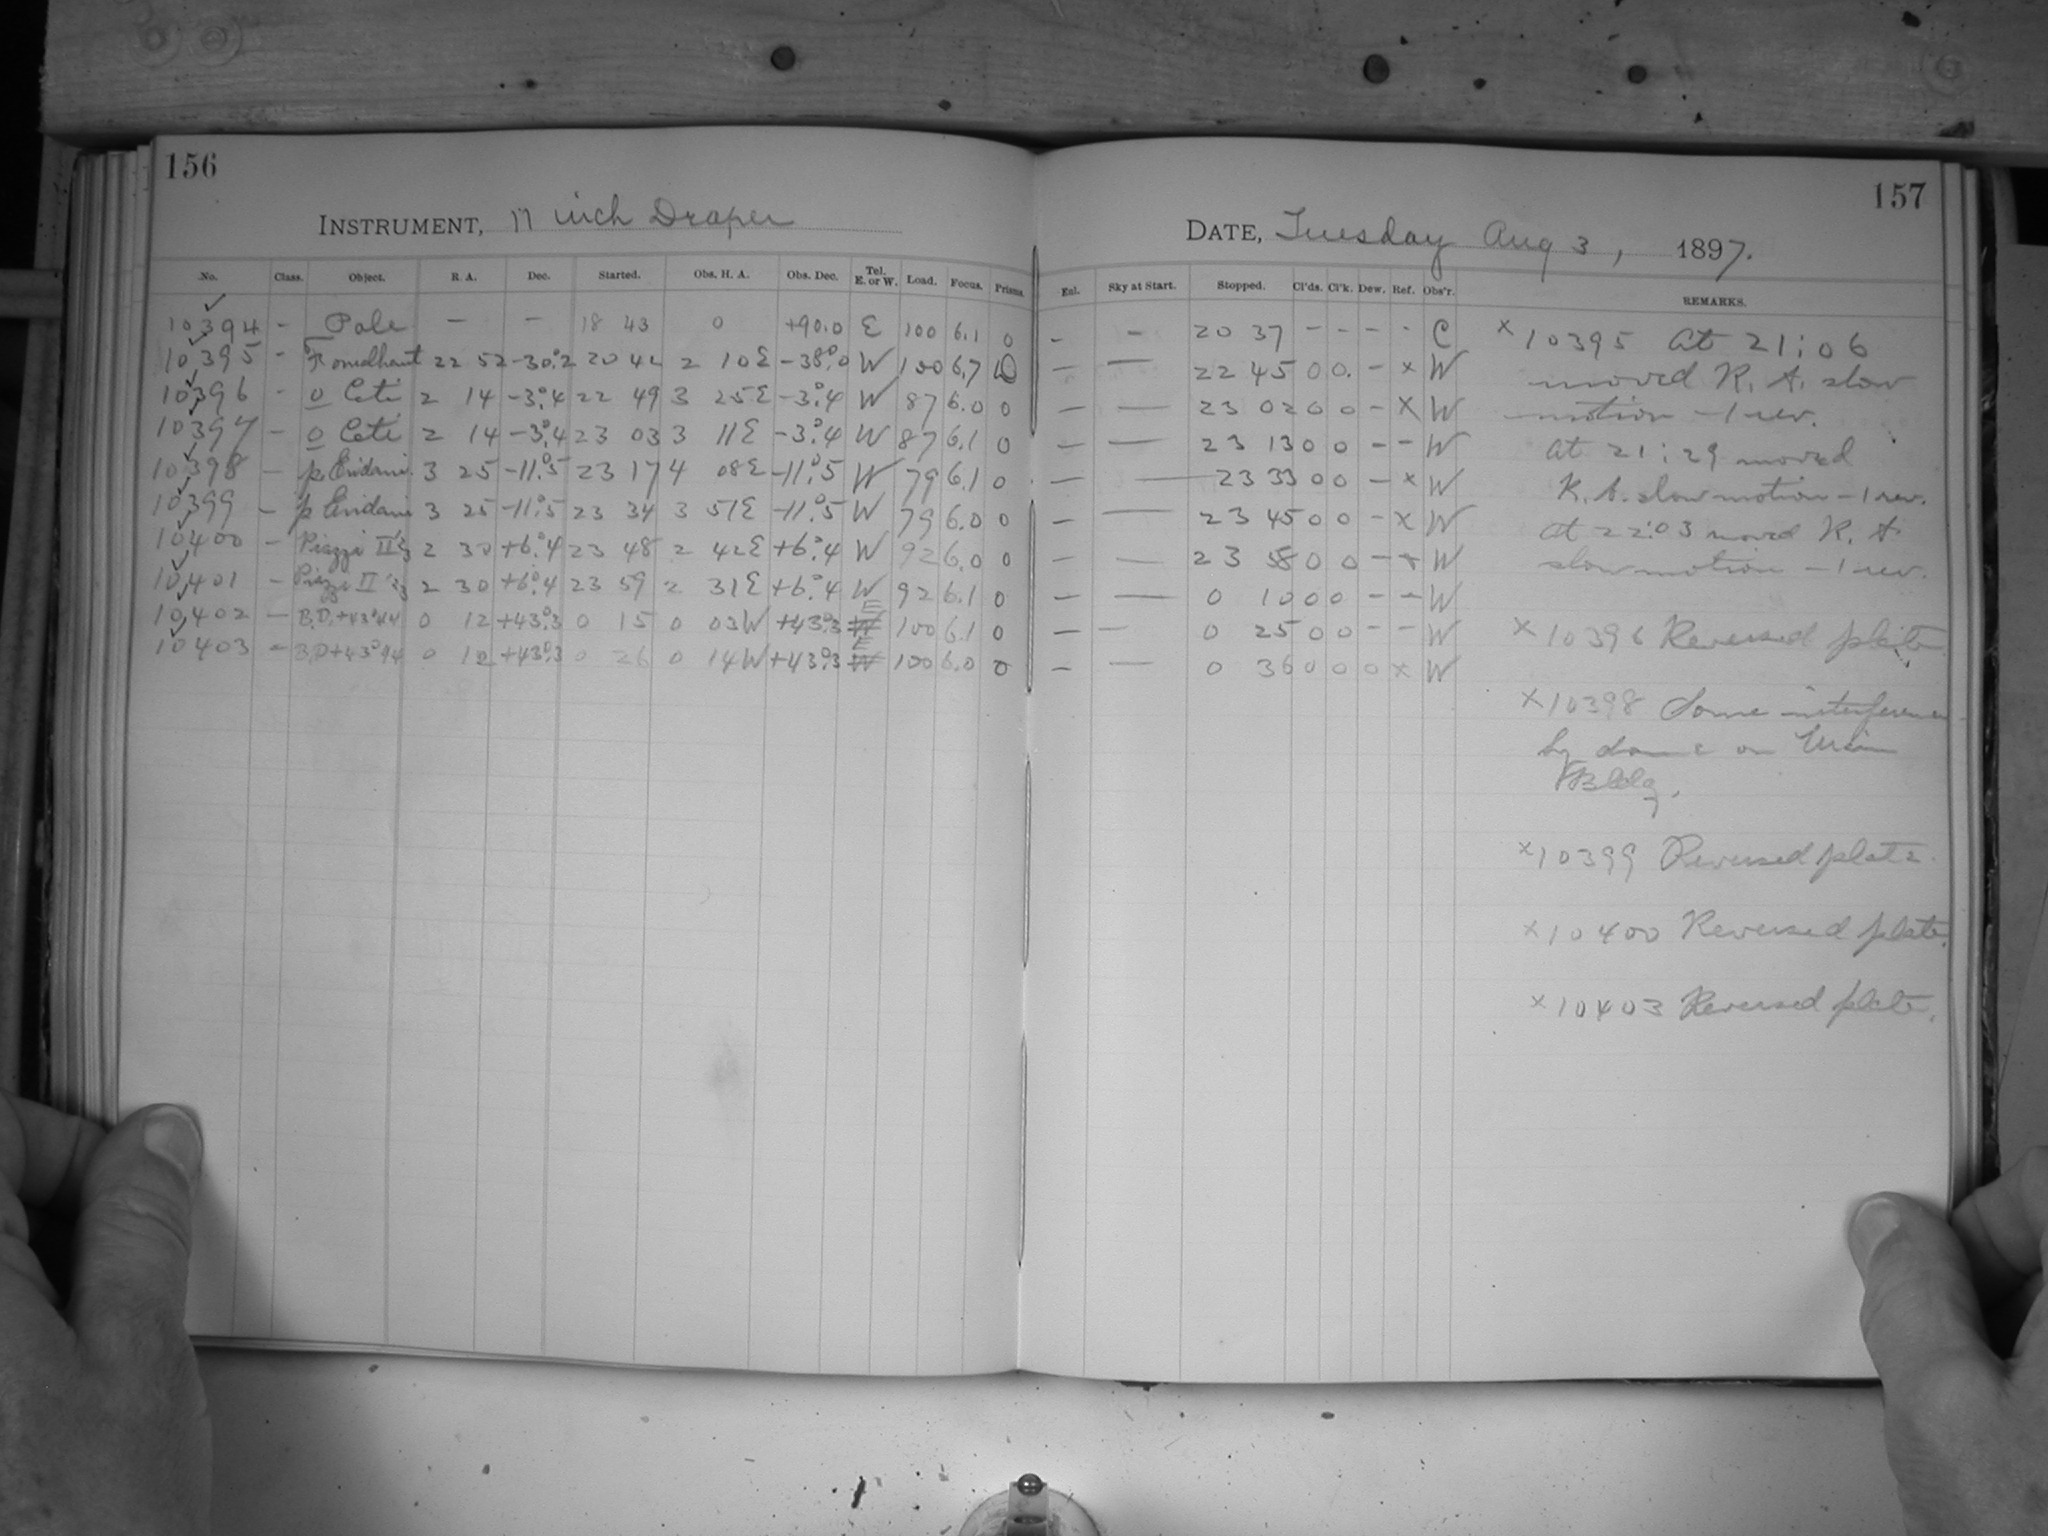 156
INSTRUMENT, 11 inch Draper
No. Class. Object. R. A. Dec. Started. Obs. H. A. Obs. Dec. Tel. E. or W. Load. Focus. Prisms.
10394 - Pole - - 18 43 0 +90.0 E 100 6.1 0
10395 - Fomalhaut 22 52 -30°.2 20 42 2 10E -38°.0 W 100 6.7 0
10396 - o Ceti 2 14 -3°.4 22 49 3 25E -3°.4 W 87 6.0 0
10397 - o Ceti 2 14 -3°.4 23 03 3 11E -3°.4 W 87 6.1 0
10398 - p Eridani 3 25 -11°.5 23 17 4 08E -11°.5 W 79 6.1 0
10399 - p Eridani 3 25 -11°.5 23 34 3 51E -11°.5 W 79 6.0 0
10400 - Piazzi II 2 30 +6°.4 23 48 2 42E +6°.4 W 92 6.0 0
10401 - Piazzi II 2 30 +6°.4 23 59 2 31E +6°.4 W 92 6.1 0
10402 - B.D.+43°44 0 12 +43°.3 0 15 0 03W +43°.3 E 100 6.1 0
10403 - B.D+43°44 0 12 +43°.3 0 26 0 14W +43°.3 E 100 6.0 0
157
DATE, Tuesday Aug 3, 1897.
Enl. Sky at Start. Stopped. Cl'ds. Cl'k. Dew. Ref. Obs'r. REMARKS.
- - 20 37 - - - - C
- — 22 45 0 0. - x W
- — 23 02 0 0 - X W
- — 23 13 0 0 - - W
- — 23 33 0 0 - x W
- — 23 45 0 0 - X W
- — 23 58 0 0 - x W
- — 0 10 0 0 - - W
- — 0 25 0 0 - - W
- — 0 36 0 0 0 x W
x 10395 At 21:06
moved R. A. slow
motion -1 rev.
At 21:29 moved
R. A. slow motion -1 rev.
At 22:03 moved R. A.
slow motion -1 rev.
x 10396 Reversed plate.
x 10398 Some interference
by dome on Main
Bldg.
x 10399 Reversed plate.
x 10400 Reversed plate.
x 10403 Reversed plate.